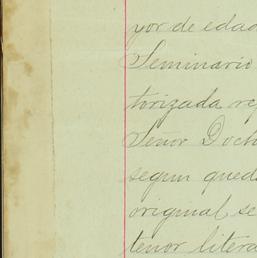 yor de edad
Seminario
torizada re
Señor Doct
segun qued
original se
tenor litera